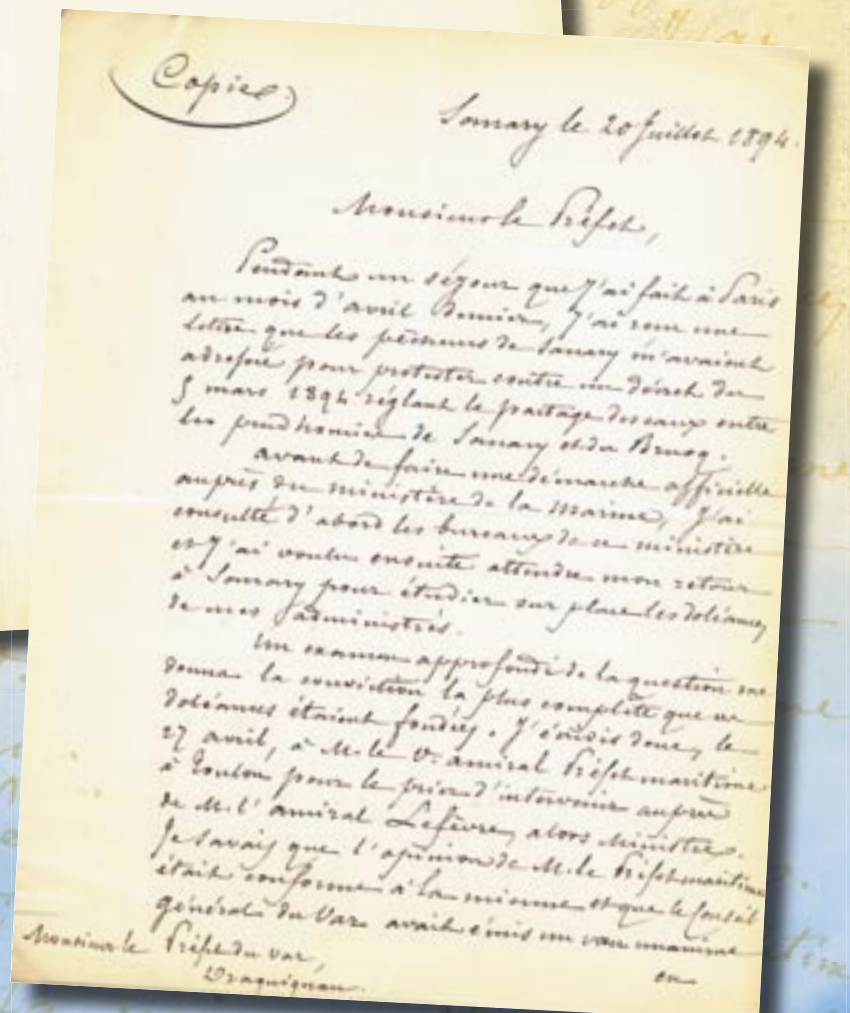 Copie
Sanary le 20 Juillet 1894.
Monsieur le Préfet,
Pendant un séjour que j'ai fait à Paris
au mois d'avril dernier, j'ai reçu une
lettre que les pêcheurs de Sanary m'avaient
adressée pour protester contre un décret du
5 mars 1894 réglant le partage des eaux entre
les prud'homies de Sanary et du Brusq.
avant de faire une démarche officielle
auprès du ministère de la marine, j'ai
consulté d'abord les bureaux de ce ministère
et j'ai voulu ensuite attendre mon retour
à Sanary pour étudier sur place les doléances
de mes administrés.
Un examen approfondi de la question me
donna la conviction la plus complète que ces
doléances étaient fondées. J'écrivis donc, le
27 avril, à M. le v. amiral Préfet maritime
à Toulon pour le prier d'intervenir auprès
de M. l'amiral Lefèvre, alors Ministre.
Je savais que l'opinion de M. le Préfet maritime
était conforme à la mienne et que le Conseil
général du Var avait émis un vœu unanime
en
Monsieur le Préfet du var,
Draguignan.